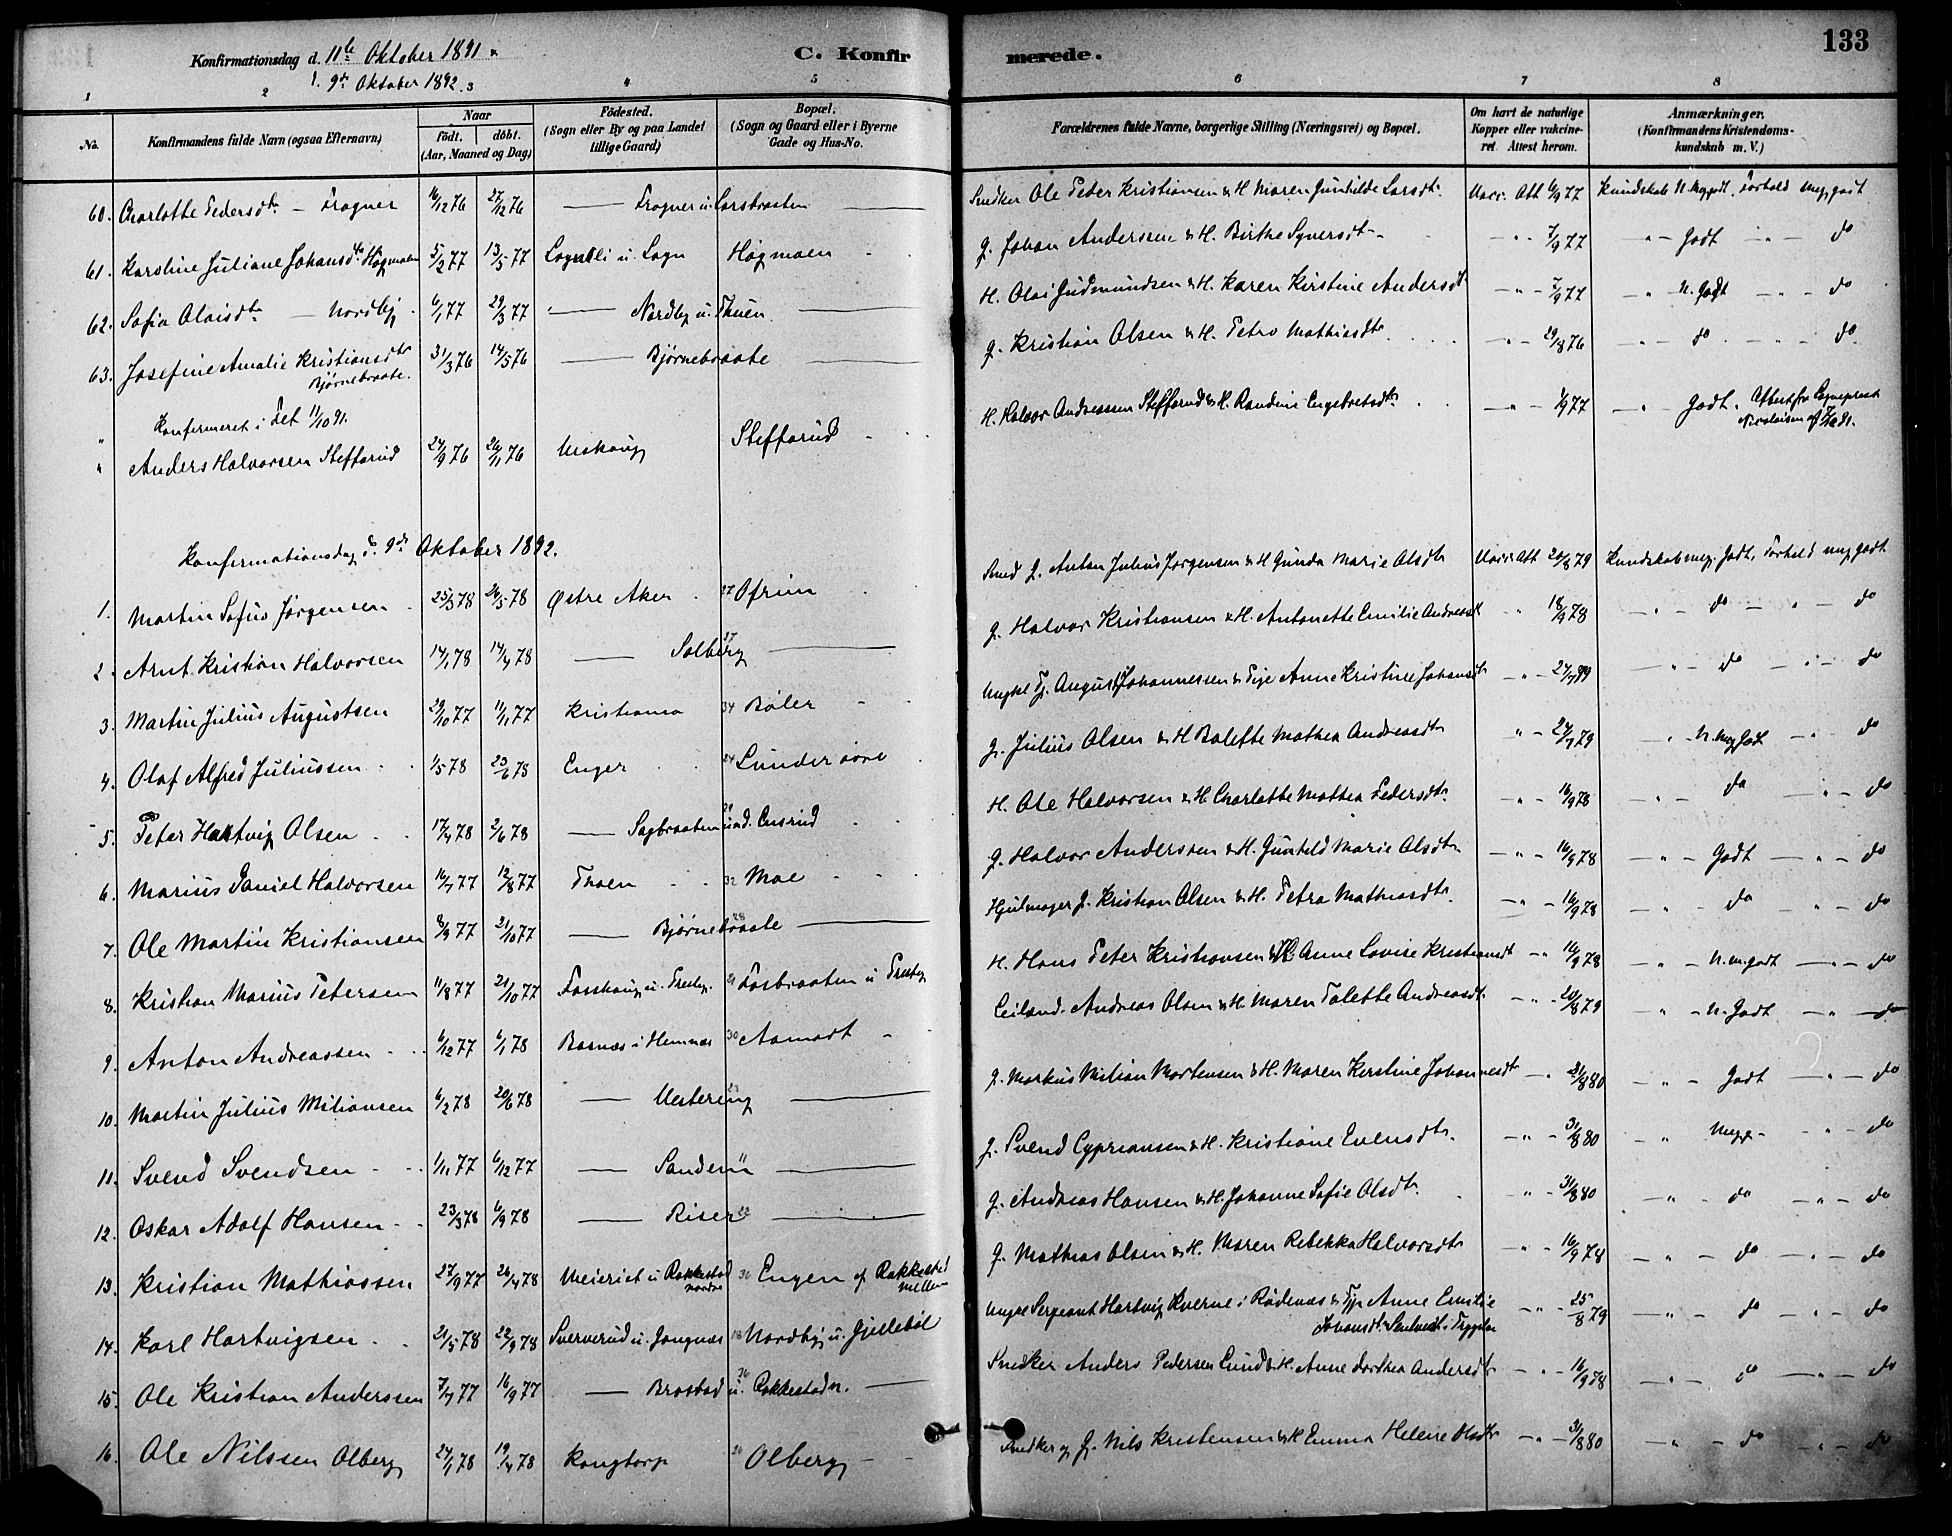 133
Konfirmationsdag d. 11te Oktober 1891
d. 9de Oktober 1892.
C. Konfirmerede.
1 2 3 4 5 6 7 8
No.
Konfirmandens fulde Navn (ogsaa Efternavn)
Naar
födt. döbt.
(Aar, Maaned og Dag)
Födested.
(Sogn eller By og paa Landet tillige Gaard)
Bopæl.
(Sogn og Gaard eller i Byerne Gade og Hus-No.
Forældrenes fulde Navne, borgerlige Stilling (Næringsvei) og Bopæl.
Om havt de naturlige Kopper eller vakcineret. Attest herom.
Anmærkninger.
(Konfirmandens Kristendomskundskab m. V.)
60. Charlotte Pedersdtr. – Fragner 16/12 76 27/12 76 — Fragner u. Larsbraaten — Snedker Ole Peter Kristiansen & H. Maren Gunhilde Larsdtr. Vacc. Att 6/9 77 Kundskab N. Meg godt. Forhold meg godt
61. Karoline Juliane Johansdtr Høgmoen 5/2 77 13/5 77 Lognlli u. Logn Høgmoen G. Johan Anderssen & H. Birthe Syversdt – " – 7/9 77 – " – Godt – " – do
62. Sofie Olaisdtr – Nordby 6/1 77 29/3 77 — Nordby u. Thuen — H. Olai Gudmundsen & H. Karen Kirstine Andersdt – " – 7/9 77 – " N. Godt – " – do
63. Josefine Amalie Kristiansdtr Bjørnebraate. 31/3 76 14/5 76 — Bjørnebraate — G. Kristian Olsen & H. Petra Mathiasdtr. – " – 29/8 76 – " – do – " – do
" Konfirmeret i Fet 11/10 91.
" Anders Halvorsen Steffarud 24/9 76 26/11 76 Urskoug Steffarud H. Halvor Andreassen Steffarud & H. Randine Engebretsdtr. – " – 1/9 77 – " – Godt. Attest fra Sogneprest Nicolaisen af
Konfirmationsdag d. 9de Oktober 1892.
1. Martin Sofus Jørgensen 25/3 78 26/5 78 Østre Aker 27 Ofrim Smed G. Anton Julius Jørgensen & H Gunda Marie Olsdtr Vacc. Att 20/8 79 Kundskab meg. Godt. Forhold meg godt
2. Arnt Kristian Halvorsen 14/1 78 14/4 78 — 37 Solberg — G. Halvor Kristiansen & H. Antonette Emilie Andreasdt " 18/9 78 – " – do – " – do
3. Martin Julius Augustsen 29/10 77 11/11 77 Kristiania 34 Bøler Ungkl Tj. August Johannessen & Pige Anne Kristine Johansdt – " – 27/7 89 – " – do – " – do
4. Olaf Alfred Juliussen 1/5 78 23/6 78 Enger 24 Lunder øvre G. Julius Olsen & H Bolette Mathea Andreasdtr " – 27/7 79 " N. Meg Godt – " do
5. Peter Hartvig Olsen 17/4 78 2/6 78 — Sagbraaten und. Ensrud H. Ole Halvorsen & H. Charlotte Mathea Pedersdtr. – " – 16/9 78 – " – do " – do
6. Marius Daniel Halvorsen 16/7 77 12/8 77 Thoen 32 Moe G. Halvor Anderssen & H. Gunhild Marie Olsdtr – " – 16/9 78 – " – Godt – " – do
7. Ole Martin Kristiansen 8/9 77 21/10 77 — 28 Bjørnebraate — Hjulmager G. Kristian Olsen & H. Petra Mathiasdtr. – " – 16/9 78 – " – do " – do
8. Kristian Marius Petersen 11/8 77 21/10 77 Forshoug u. Præsteg. 21 Fosbraaten u Præsteg H. Hans Peter Kristiansen & H. Anne Lovise Kristiansdt – " 16/9 78 – " – N. m. godt – " – do
9. Anton Andreassen 6/12 77 6/1 78 Basnæs i Hemnæs 30 Aamodt Leiland. Andreas Olsen & H. Maren Tolette Andreasdt. – " – 20/8 79 – " – N. Godt – " – do
10. Martin Julius Miliansen 6/2 78 20/6 78 — 23 Mestereng — G. Markus Milian Mortensen & H. Maren Kerstine Johannesdtr – " 31/8 80 – " – Godt – " – do
11. Svend Svendsen 1/11 77 6/12 77 — Sandern — G. Svend Cypriansen & H. Kristiane Evensdtr. – " – 31/8 80 – " Megg – – " – do
12. Oskar Adolf Hansen 23/3 78 6/9 78 — Riser — G. Andreas Hansen & H. Johanne Sofie Olsdtr. " – 31/8 80 – " – do – " – do
13. Kristian Mathiassen 27/9 77 26/4 78 Meieriet u Rakkestad nordre 36 Engen af Rakkestad mellem G. Mathias Olsen & H. Maren Rebekka Halvorsdtr – " – 16/9 78 – " – do – " – do
14. Karl Hartvigsen 21/5 78 22/9 78 Sververud u. Jangnæs 18 Nordby u. Gjellebøl Ungkl Sergeant Hartvig Kverne i Rødenæs & Pige Anne Emilie Johansdtr. – " – 25/8 79 – " – do – " – do
15. Ole Kristian Anderssen 7/7 77 16/9 77 — Brostad u. 36 Rakkestad n. — Snedker Anders Pedersen Lund & H. Anne Dorthea Andersdtr – " – 16/9 78 – " – do – " – do
16. Ole Nilssen Olberg 24/1 78 19/4 78 Kongtorp 20 Olberg Snedker og G. Nils Kristensen & H Emma Helene Olsdtr – " – 31/8 80 – " – do – " – do